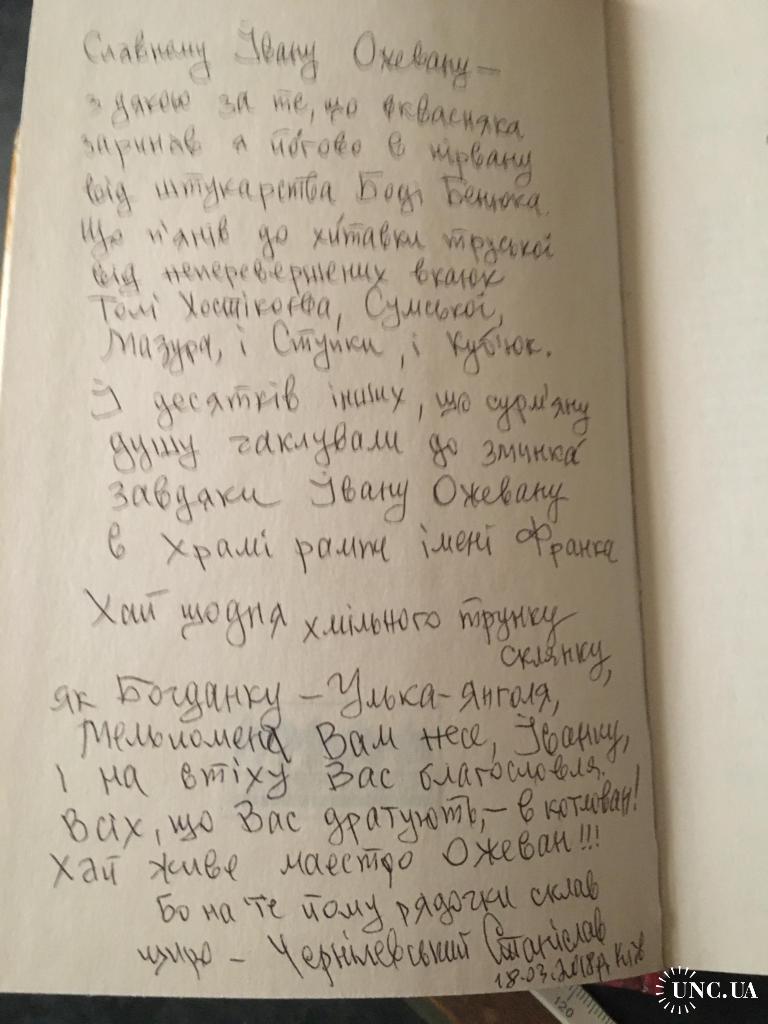 Славному Івану Ожевану —
з дякою за те, що
заринав я його в нірвану
від штукарства Боді Бенюка.
Що п'янів до хитавки труської
від неперевершених
Толі Хостікоєва, Сумської,
Мазура, і Ступки, і Куб'юк.
І десятків інших, що сурм'яну
душу чаклували до
завдяки Івану Ожевану
в храмі рампи імені Франка
Хай щодня хмільного трунку
склянку,
як Богданку – Улька-янголя,
Мельпомена Вам несе, Іванку,
І на втіху Вас благословля.
Всіх, що Вас дратують, – в котлован!
Хай живе маестро Ожеван!!!
Бо на те йому рядочки склав
щиро – Чернілевський Станіслав
18.03.2018р. Київ
120
UNC.UA